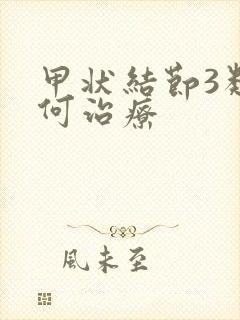 甲状結節3類
何治療
風未至